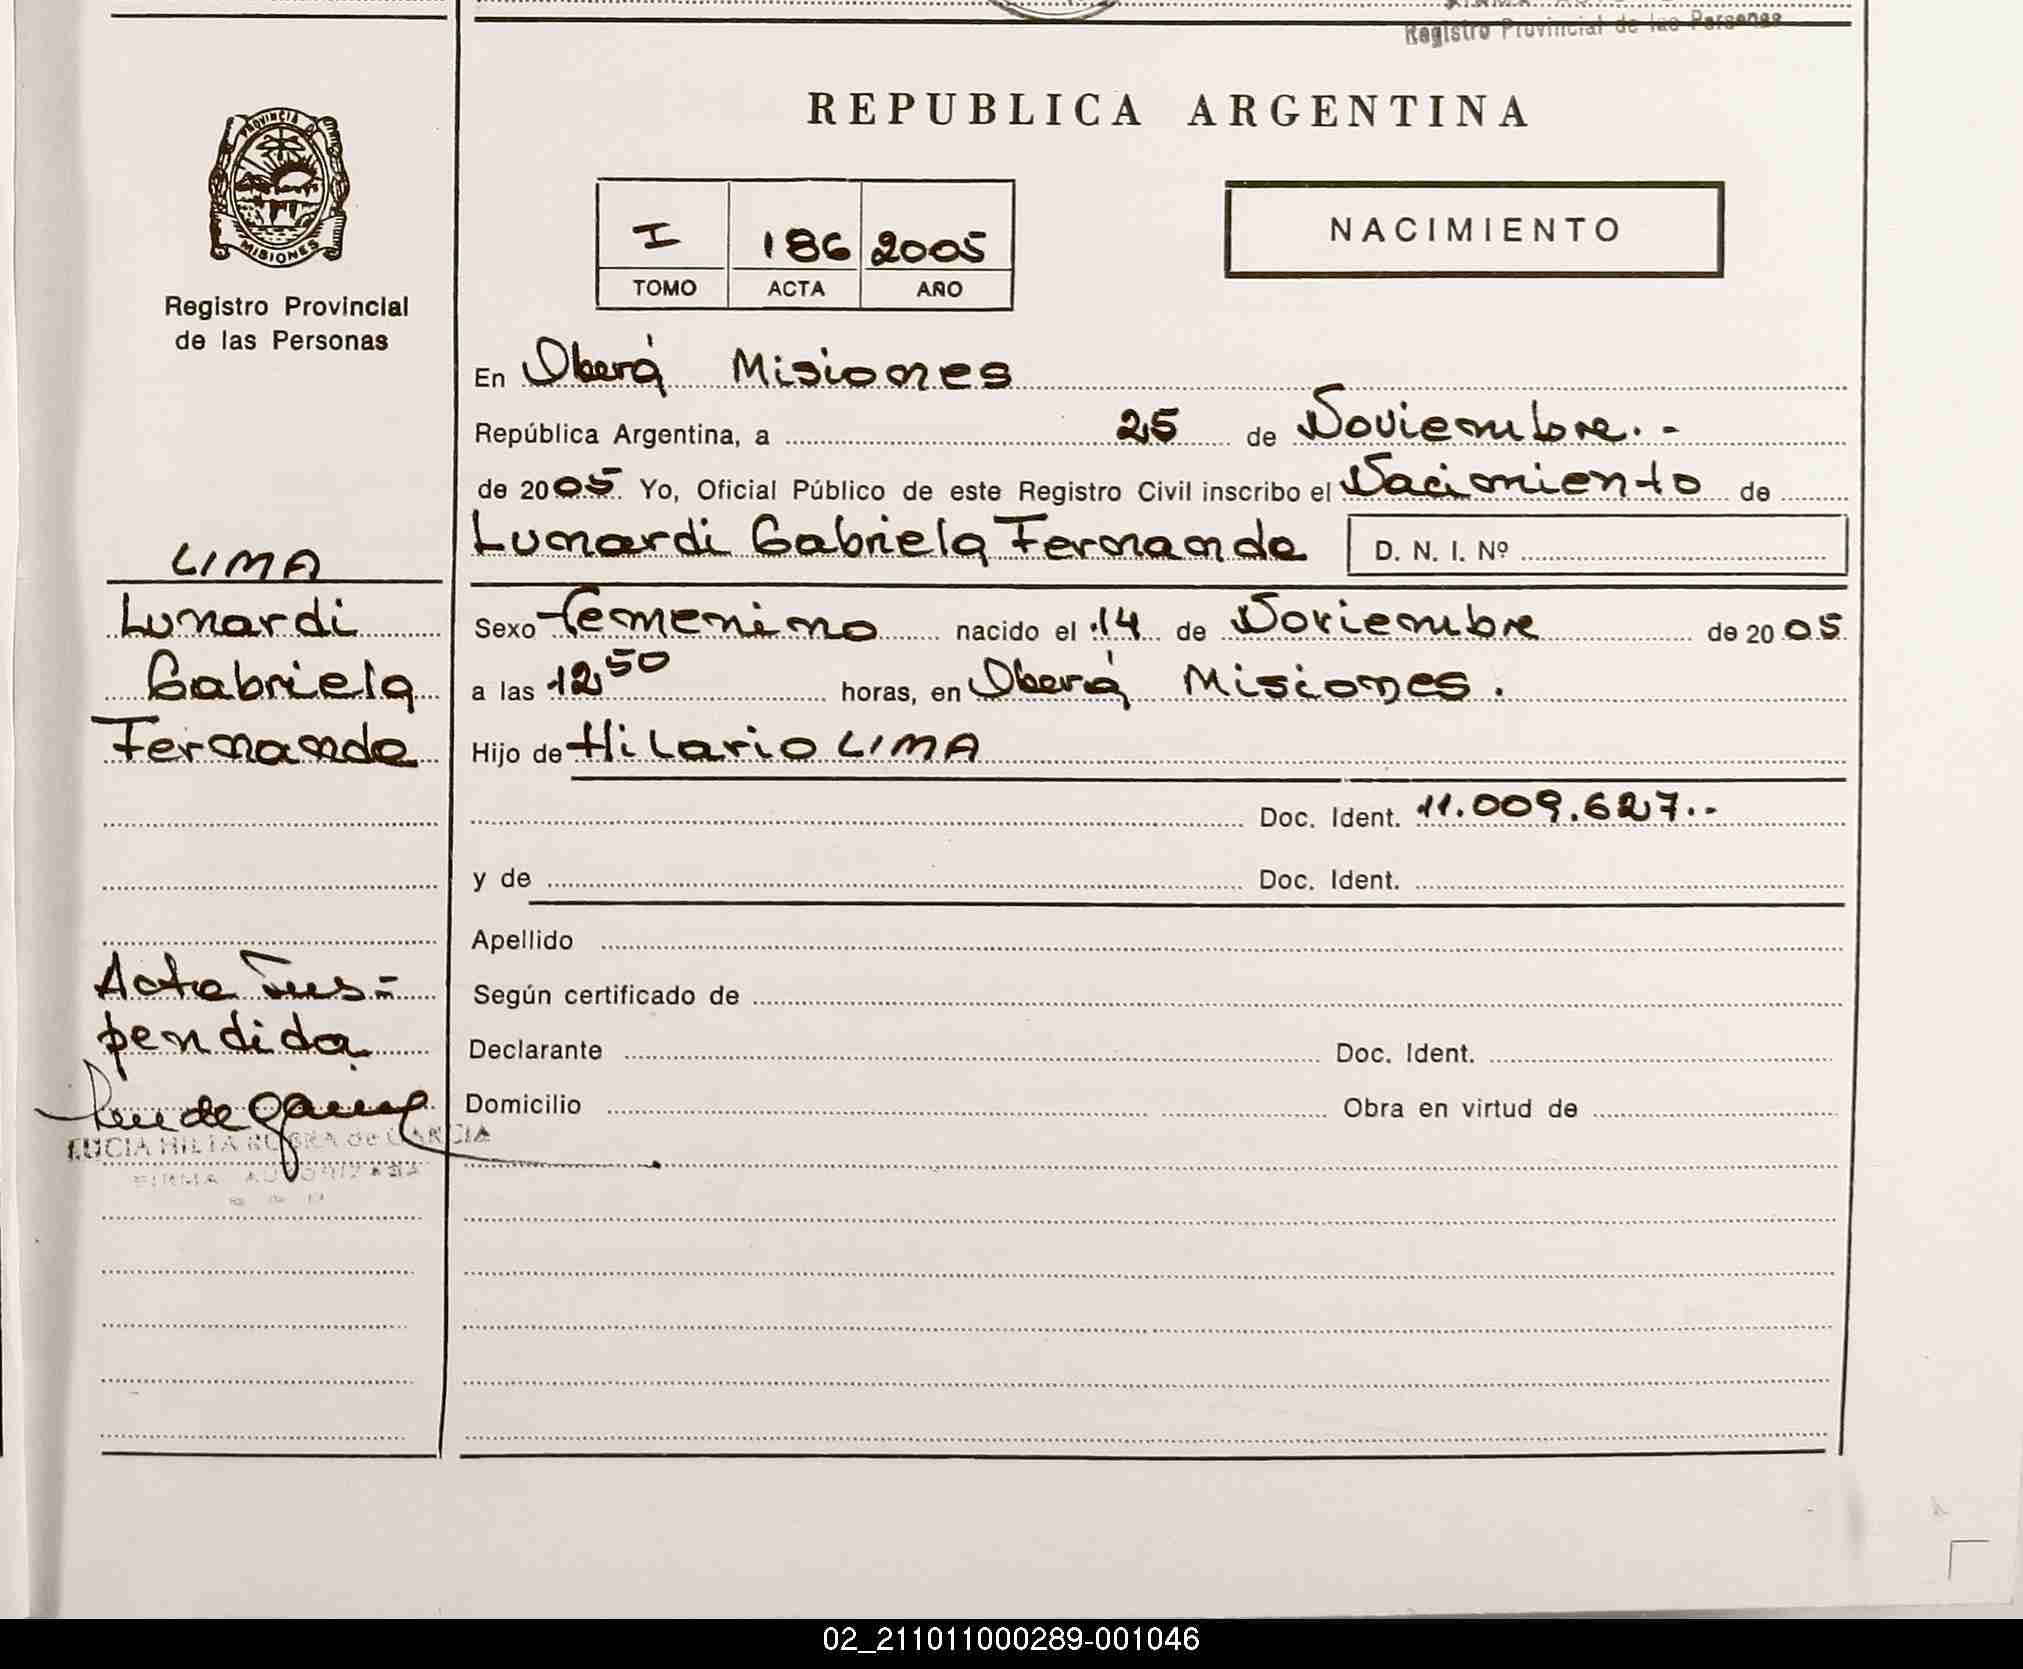 Registro Provincial de las Personas
REPUBLICA ARGENTINA
PROVINCIA DE
MISIONES
Registro Provincial
de las Personas
I 186 2005
TOMO ACTA AÑO
NACIMIENTO
En Oberá Misiones
República Argentina, a 25 de Noviembre.-
de 2005 Yo, Oficial Público de este Registro Civil inscribo el Nacimiento de
Lunardi Gabriela Fernanda D. N. I. Nº
LIMA
Lunardi
Gabriela
Fernanda
Sexo femenino nacido el 14 de Noviembre de 2005
a las 12 50 horas, en Oberá Misiones.
Hijo de Hilario LIMA
Doc. Ident. 11.009.627.-
y de Doc. Ident.
Apellido
Según certificado de
Declarante Doc. Ident.
Domicilio Obra en virtud de
Acta Sus=
pendida
LUCIA HILIA de GARCIA
FIRMA AUTORIZADA
02_211011000289-001046